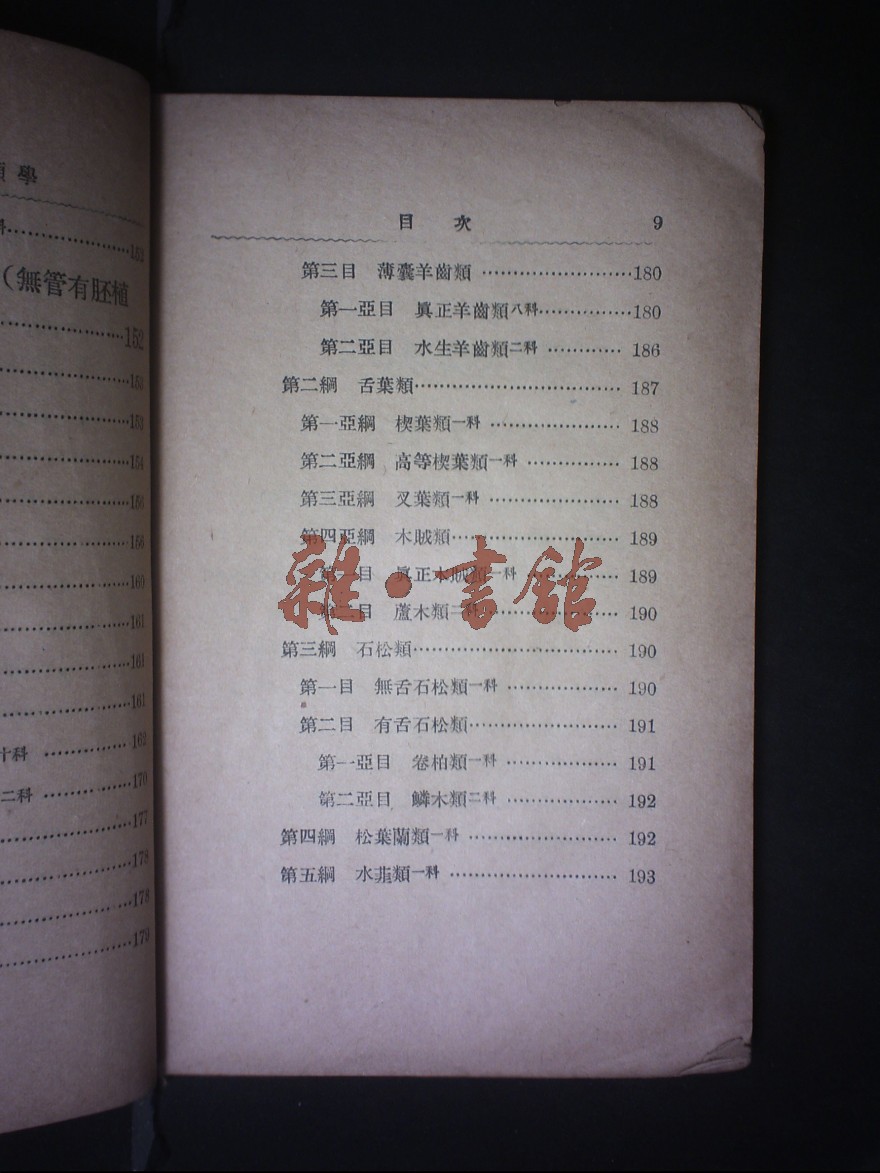 類學
152
(無管有胚植
152
153
153
154
156
156
160
161
161
161
十科 162
二科 170
177
178
178
179
目次 9
第三目 薄囊羊齒類 180
第一亞目 眞正羊齒類八科 180
第二亞目 水生羊齒類二科 186
第二綱 舌葉類 187
第一亞綱 楔葉類一科 188
第二亞綱 高等楔葉類一科 188
第三亞綱 叉葉類一科 188
第四亞綱 木賊類 189
第一目 眞正木賊類一科 189
第二目 蘆木類二科 190
第三綱 石松類 190
第一目 無舌石松類一科 190
第二目 有舌石松類 191
第一亞目 卷柏類一科 191
第二亞目 鱗木類二科 192
第四綱 松葉蘭類一科 192
第五綱 水韮類一科 193
雜·書館